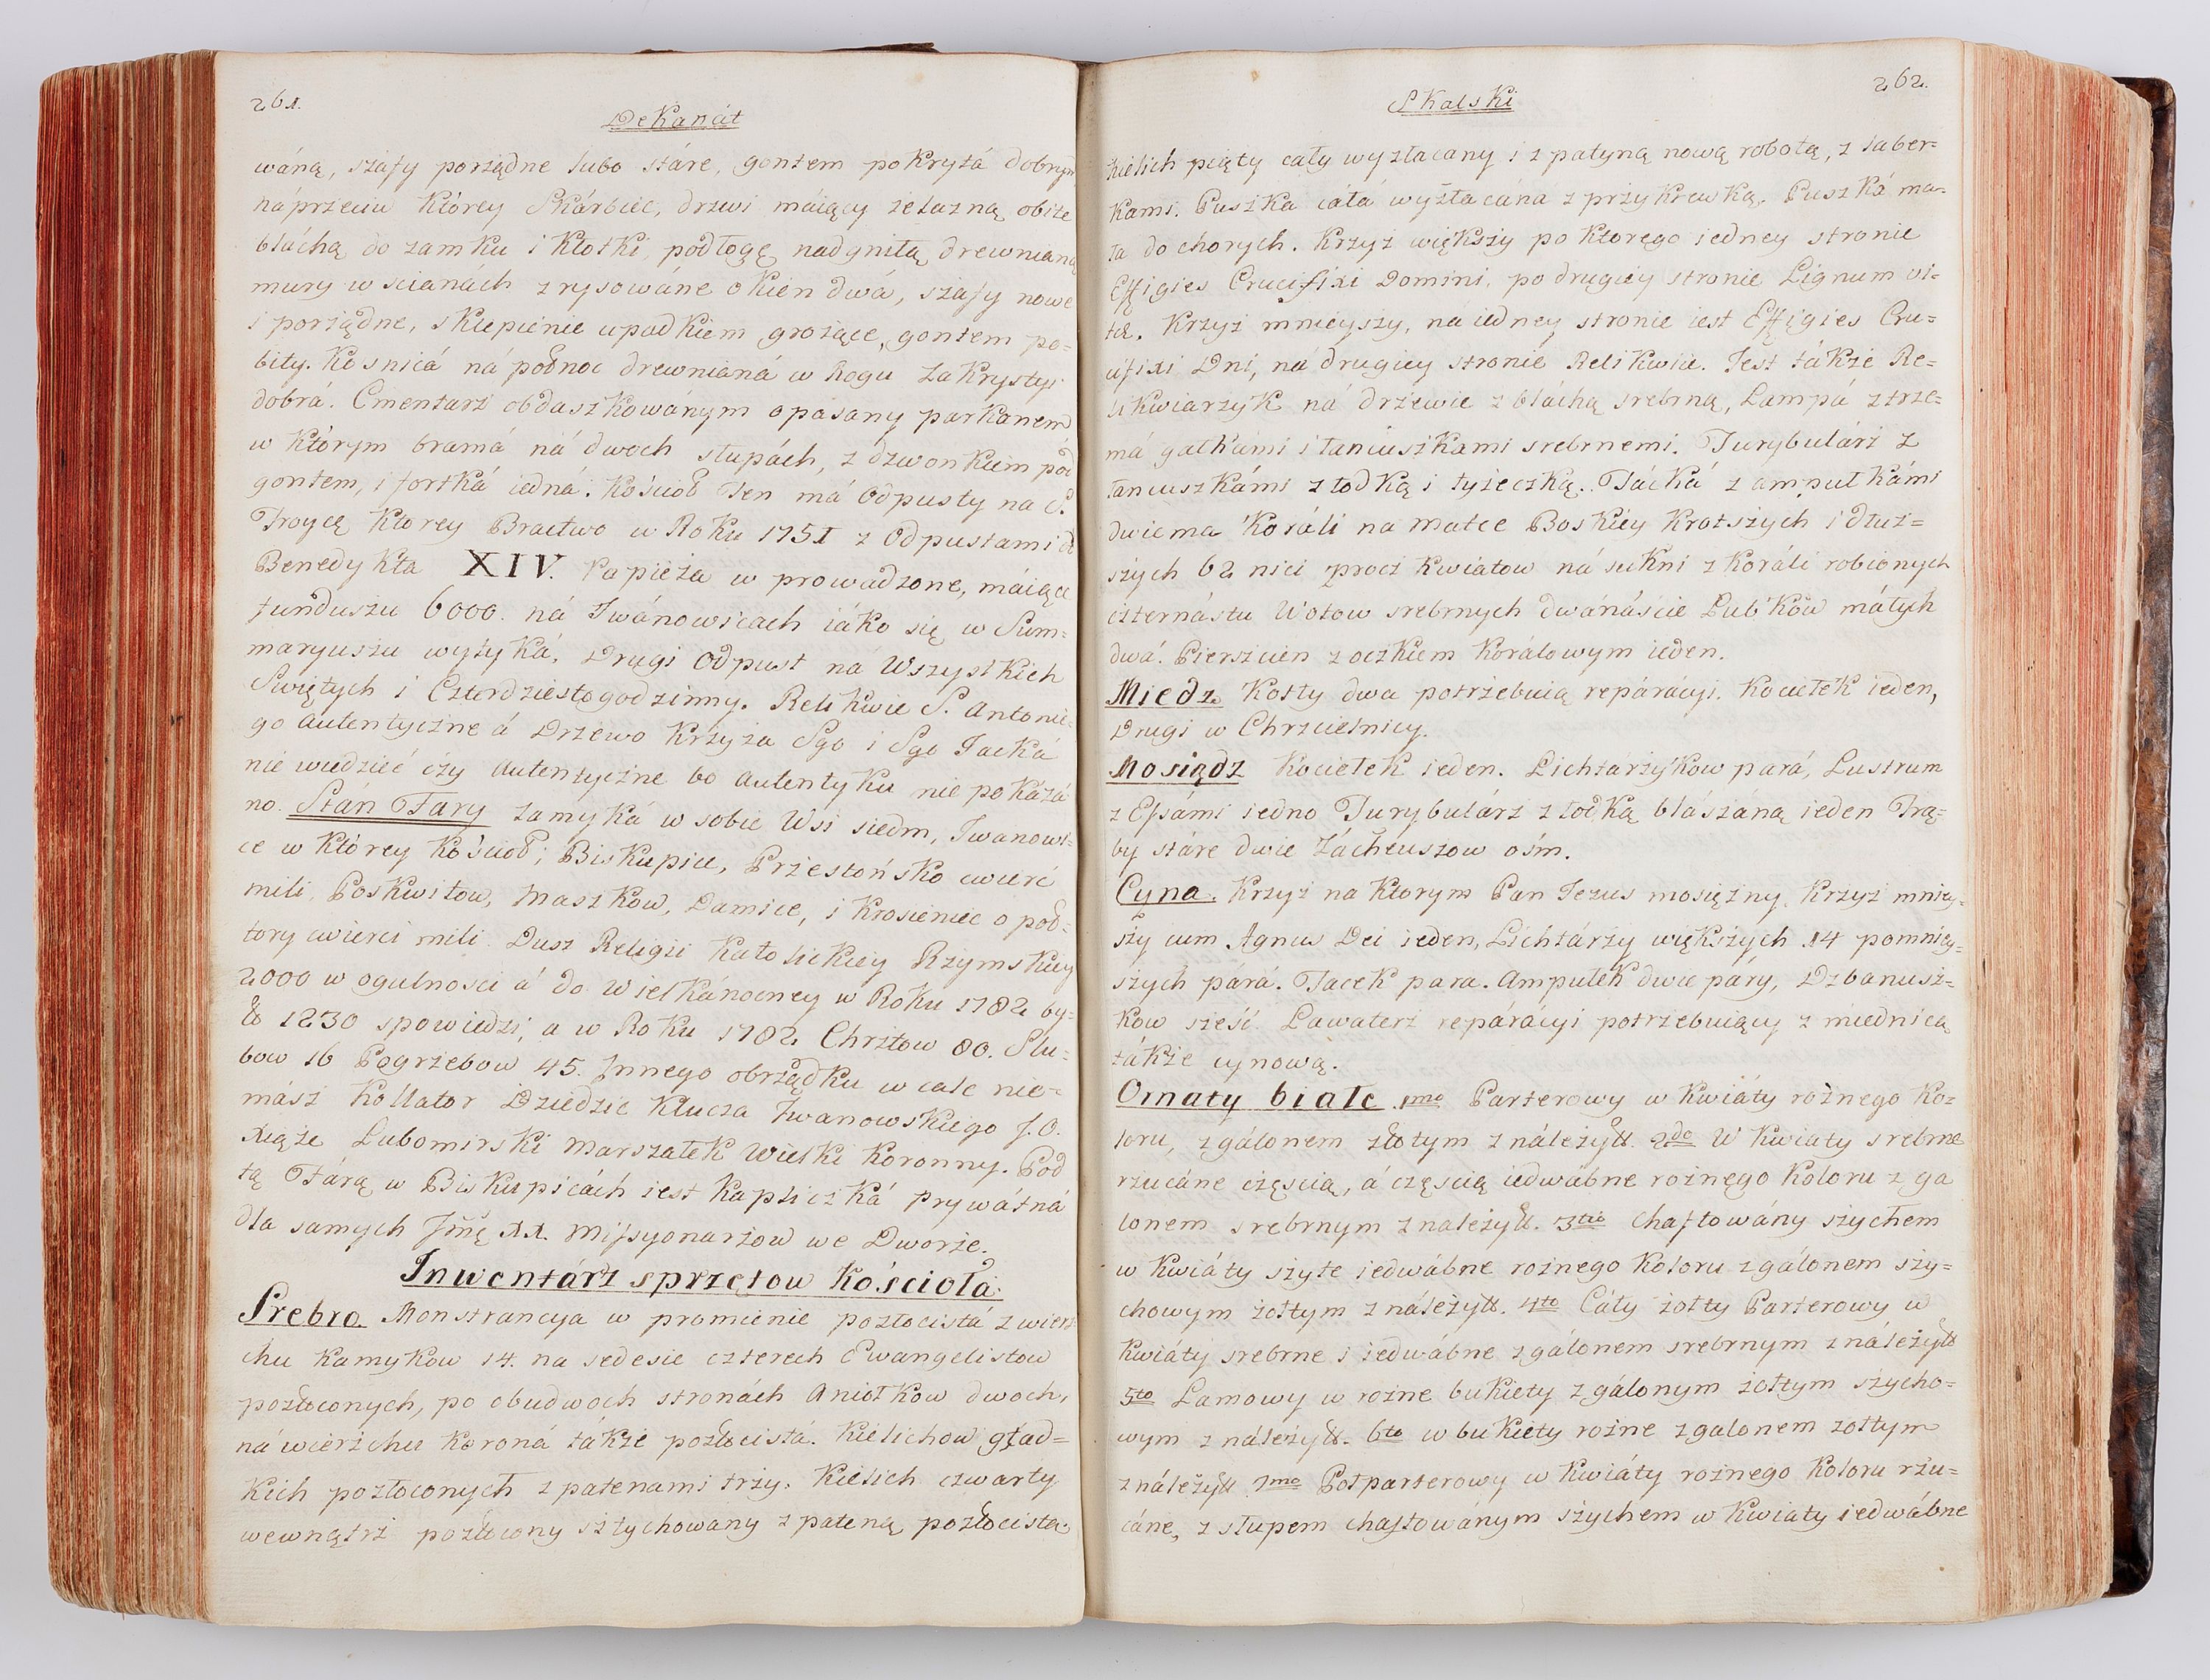 261.
DeKanát
wáną, szafy porządne lubo stáre, gontem poKryta dobrym
náprzeciw Którey SKárbiec, drzwi máiący żelazną obite
bláchą do zamKu i KłotKi, podłogę nadgniłą drewnianą
mury w scianách zrysowáne oKien dwá, szafy nowe
i porządne, sKlepienie upadKiem grożące, gontem po=
bity. Kosnicá ná połnoc drewnianá w Rogu ZaKrystyi
dobrá. Cmentarz obdaszKowánym opásany parKanem
w Którym bramá ná dwoch słupách, z dzwonKiem pod
gontem, i fortKá iedná. Kościoł Ten má Odpusty na S.
Troycę Ktorey Bractwo w RoKu 1751 z Odpustami od
BenedyKta XIV. Papieża w prowadzone, máiące
funduszu 6000. ná Iwánowicach iáKo się w Sum=
maryuszu wytyKá. Drugi Odpust ná WszystKich
Swiętych i Czterdziestogodzinny. ReliKwie S. Antonie=
go autentyczne á Drzewo Krzyża Sgo i Sgo JacKá
nie wiedzieć czy autentyczne bo autentyKu nie poKázá
no. Stán Fary zamyKá w sobie Wsi siedm, Iwanowi=
ce w Którey Kościoł; BisKupice, PrzestońsKo cwierć
mili, PosKwitow, MaszKow, Damice, i Krosieniec o poł=
tory cwierci mili. Dusz Religii KatolicKiey RzymsKiey
2000 w ogulnosci á do WielKánocney w RoKu 1782 by=
ło 1230 spowiedzi, a w RoKu 1782 Chrztow 80. Slu=
bow 16 Pogrzebow 45. Innego obrządKu w cale nie=
mász Kollator Dziedzic Klucza IwanowsKiego J.O.
Xiąże LubomirsKi MarszałeK WielKi Koronny. Pod
tą Fárą w BisKupicách iest KapliczKá Prywátná
dla samych Jmę XX. Missyonarzow we Dworze.
Inwentárz sprzętow Kościoła.
Srebro. Monstrancya w promienie pozłocistá z wierz
chu KamyKow 14. na sedesie czterech Ewangelistow
pozłoconych, po obudwoch stronách AniołKow dwoch,
ná wierzchu Koroná táKże pozłocistá. Kielichow gład=
Kich pozłoconych z patenami trzy. Kielich czwarty
wewnątrz pozłocony sztychowany z pateną pozłocistą
262.
SKalsKi
Kielich piąty cały wyzłacany i z patyną nową robotą, z saber=
Kami. PuszKa cáłá wyzłacána z przyKrewKą. PuszKá ma=
ła do chorych. Krzyż większy po Ktorego iedney stronie
Effigies Crucifixi Domini, po drugiey stronie Lignum vi=
tæ. Krzyż mnieyszy, ná iedney stronie iest Effigies Cru=
cifixi Dni, ná drugiey stronie ReliKwie. Jest táKże Re=
liKwiarzyK ná drzewie z bláchą srebrną, Lampá z trze=
má gałKámi i łancuszKami srebrnemi. Turybulárz z
łancuszKámi z łodKą i łyżeczKą. TácKá z ampułKámi
dwiema Koráli na Matce BosKiey Krotszych i dłuż=
szych 62 nici procz Kwiatow ná suKni z Koráli robionych
czternástu Wotow srebrnych dwánáście LubKow máłych
dwá. Pierscien z oczKiem Korálowym ieden.
Miedz Kotły dwa potrzebuią repárácyi. KociełeK ieden,
Drugi w Chrzcielnicy.
Mosiądz KociełeK ieden. LichtárzyKow pará, Lustrum
z Essámi iedno Turybulárz z łodKą blászáną ieden Trą=
by stáre dwie Zácheuszow ośm.
Cyna. Krzyż na Ktorym Pan Jezus mosiężny. Krzyż mniey=
szy cum Agnus Dei ieden, Lichtárzy więKszych 14 pomniey=
szych párá. TaceK para. AmpułeK dwie páry, Dzbanusz=
Kow sześć. Lawaterz repárácyi potrzebuiący z miednicą
táKże cynową.
Ornaty białe 1mo Parterowy w Kwiáty rożnego Ko=
loru, z gálonem złotym z náleżył. 2do W Kwiaty srebrne
rzucáne częscią, á częscią iedwábne rożnego Koloru z ga
lonem srebrnym z należył. 3tio chaftowány szychem
w Kwiáty szyte iedwábne rożnego Koloru z gálonem szy=
chowym żołtym z náleżył. 4to Cáły żołty Parterowy w
Kwiáty srebrne i iedwábne z gálonem srebrnym z náleżył
5to Lamowy w rożne buKiety z gálonym żołtym szycho=
wym z należył. 6to w buKiety rożne z galonem żołtym
z náleżył 7mo Połparterowy w Kwiáty rożnego Koloru rzu=
cáne, z słupem chaftowánym szychem w Kwiaty iedwábne